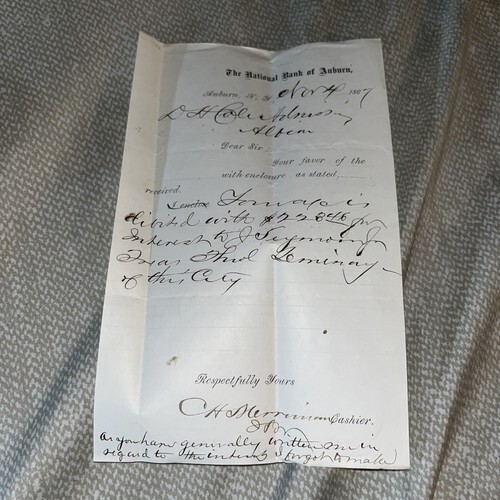 The National Bank of Auburn,
Auburn, N. Y. Nov 4 1867
D H Cole
Albion
Dear Sir
Your favor of the
with enclosure as stated,
received. is
with $228 for
Interest to J Seymour Jr
Theol
of this City
Respectfully Yours
C H Merriman Cashier.
As you have generally written me in
regard to the interest I forgot to make